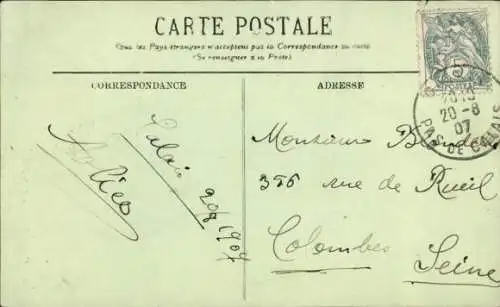 CARTE POSTALE
Tous les Pays étrangers n'acceptent pas la Correspondance au recto
(Se renseigner à la Poste)
CORRESPONDANCE
ADRESSE
5
POSTES
20-8
07
PAS DE CALAIS
Calais 20/8/1907
Monsieur
rue de Rueil
Colombes
Seine